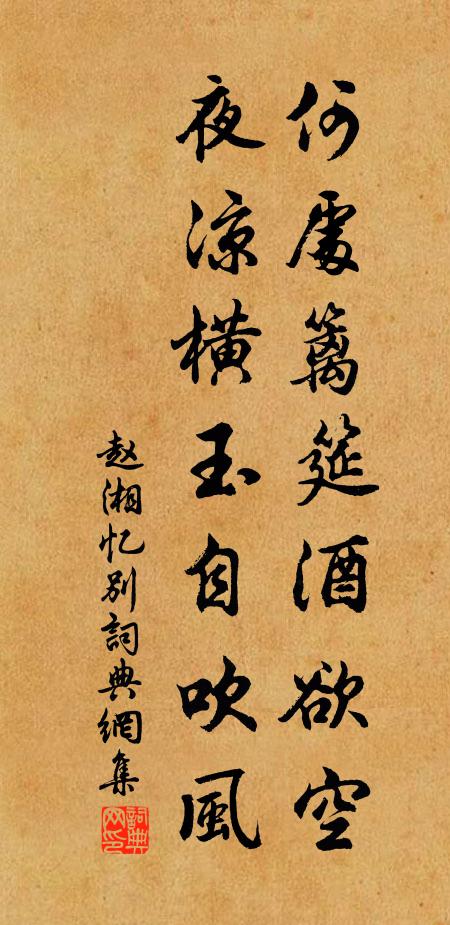 何處籬筵酒欲空
夜凉橫玉自吹風
赵湘忆别詞典網集
詞典网印